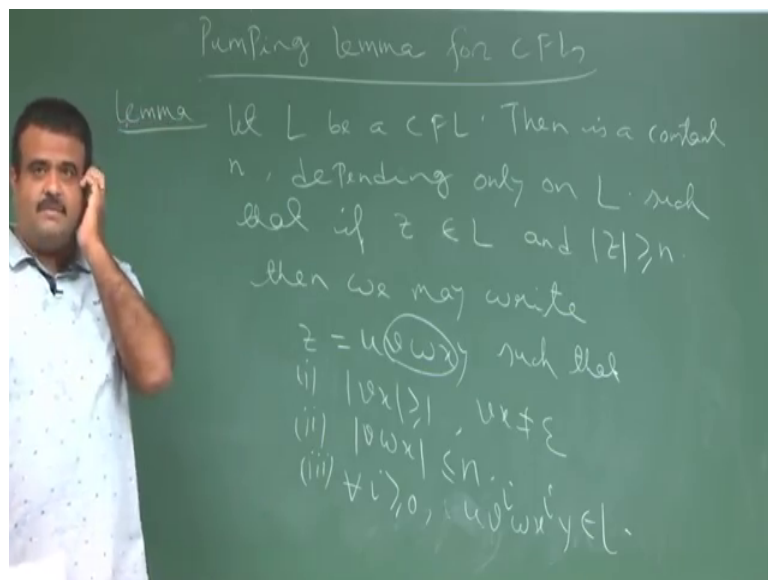 Pumping lemma for CFLs
Lemma Let L be a CFL. Then is a constant
n, depending only on L. such
that if z ∈ L and |z| ≥ n.
then we may write
z = uvwxy such that
(i) |vx| ≥ 1, vx ≠ ε
(ii) |vwx| ≤ n.
(iii) ∀ i ≥ 0, uvⁱwxⁱy ∈ L.